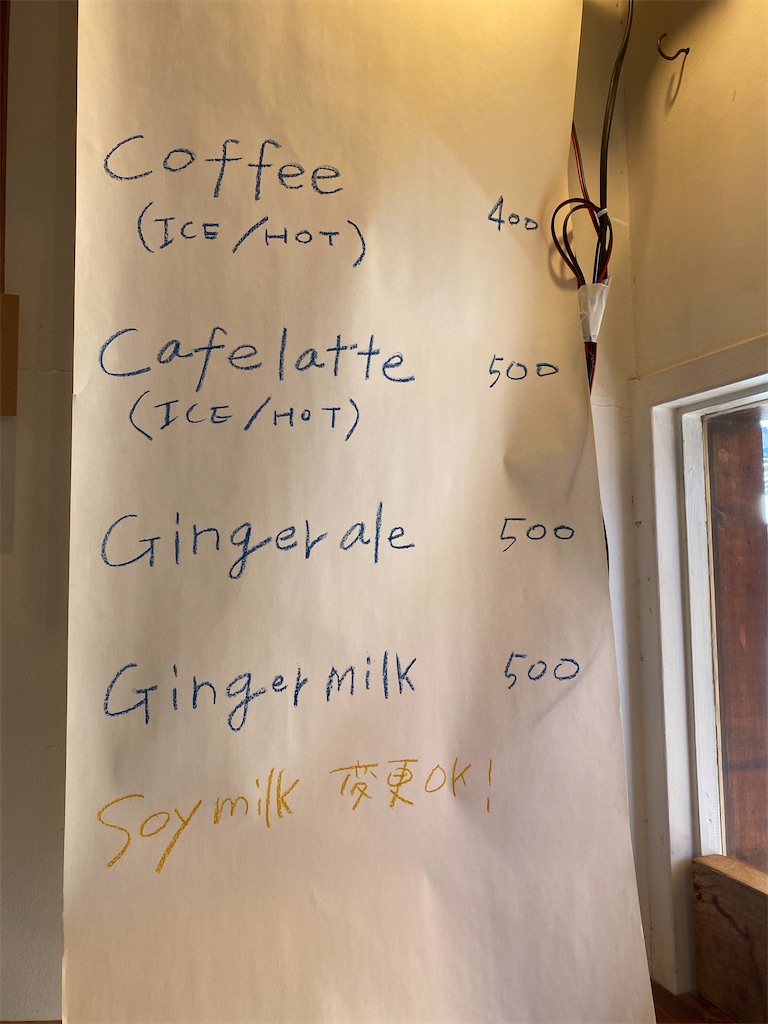 Coffee
(ICE/HOT) 400
Cafe latte 500
(ICE/HOT)
Ginger ale 500
Ginger milk 500
Soy milk 変更OK!